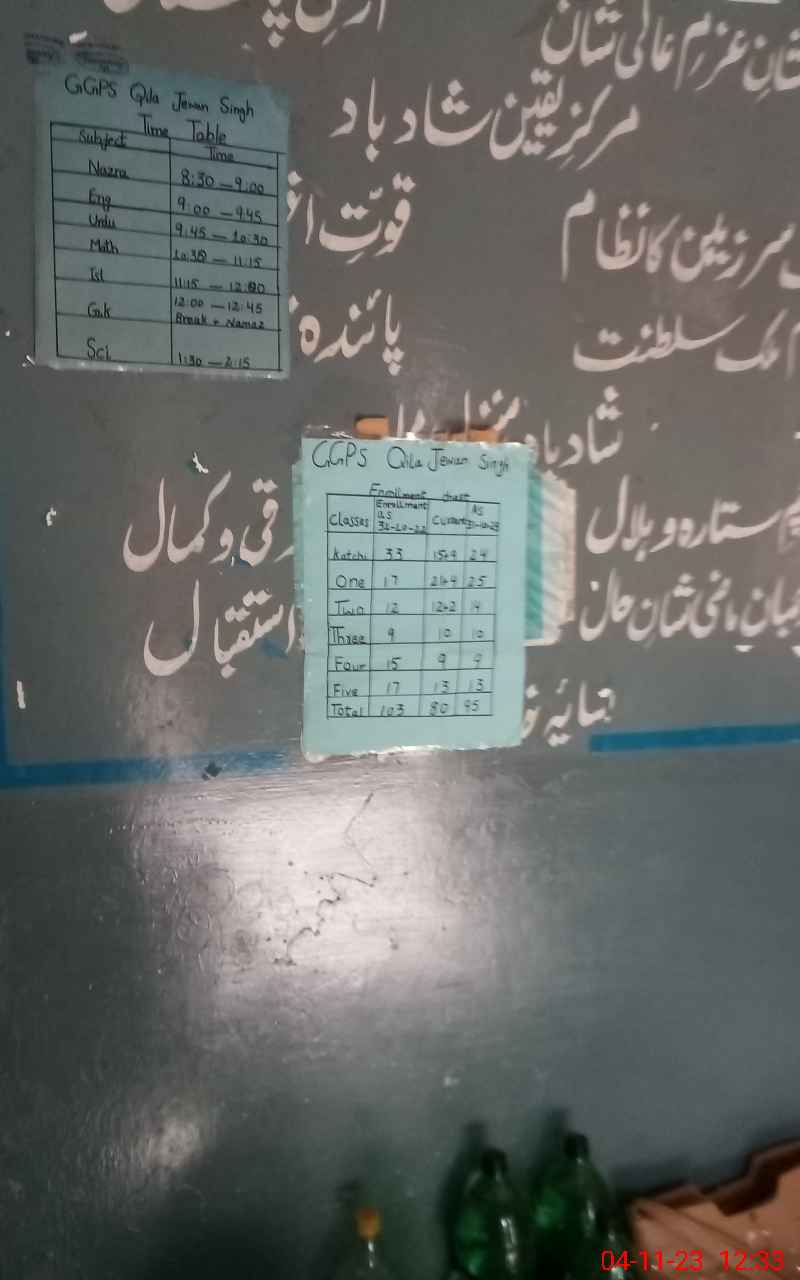 GGPS Qila Jewan Singh
Time Table
Subject Time
Nazra 8:30 — 9:00
Eng 9:00 — 9:45
Urdu 9:45 — 10:30
Math 10:30 — 11:15
Isl 11:15 — 12:00
G.k 12:00 — 12:45
Break + Namaz
Sci 1:30 — 2:15
شانِ عزمِ عالی شان
مرکزِ یقین شاد باد
سرزمین کا نظام
قوّتِ
ملک سلطنت
پائندہ
شاد باد منزل
ستارہ و ہلال
رقی و کمال
ماضی شانِ حال
استقبال
سایۂ
GGPS Qila Jewan Singh
Enrollment chart
Classes Enrollment as 31-10-22 Current as 31-10-23
Katchi 33 15+9 24
One 17 21+4 25
Two 12 12+2 14
Three 9 10 10
Four 15 9 9
Five 17 13 13
Total 103 80 95
04-11-23 12:33